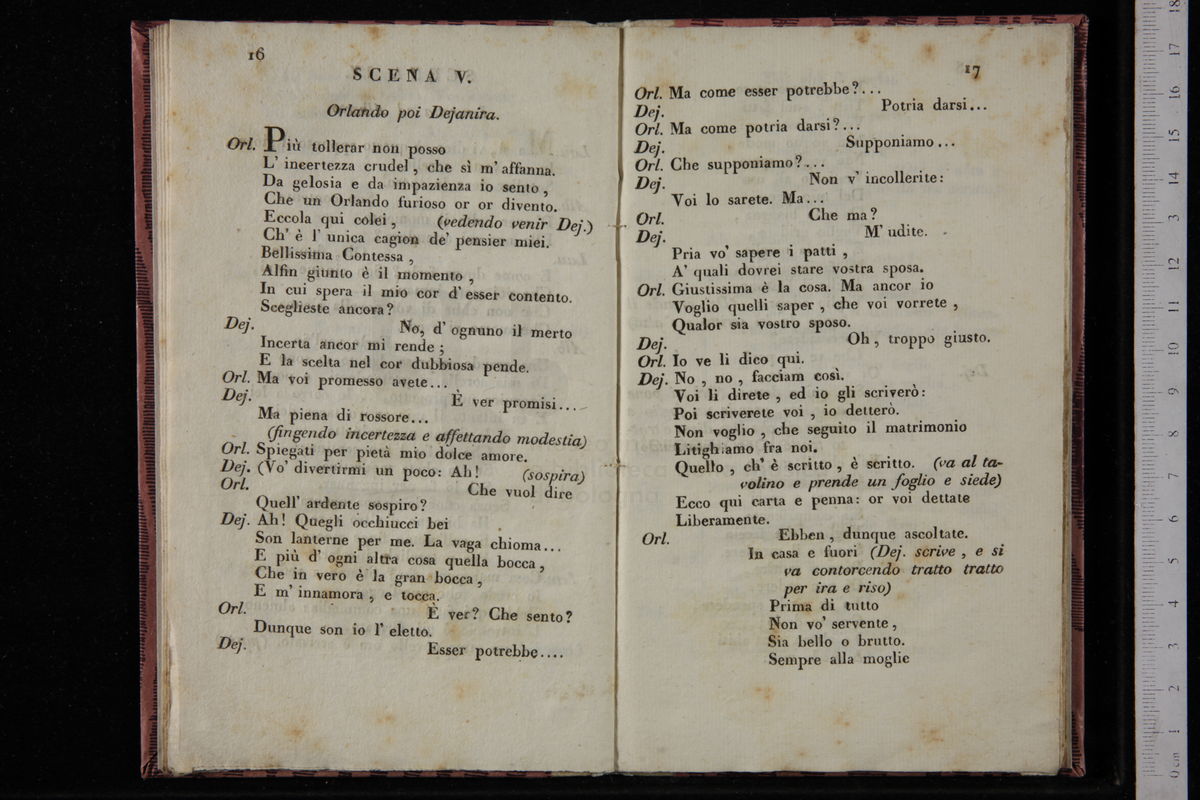 16
SCENA V.
Orlando poi Dejanira.
Orl. Più tollerar non posso
L' incertezza crudel, che sì m' affanna.
Da gelosia e da impazienza io sento,
Che un Orlando furioso or or divento.
Eccola qui colei, (vedendo venir Dej.)
Ch' è l' unica cagion de' pensier miei.
Bellissima Contessa,
Alfin giunto è il momento,
In cui spera il mio cor d' esser contento.
Sceglieste ancora?
Dej. No, d' ognuno il merto
Incerta ancor mi rende;
E la scelta nel cor dubbiosa pende.
Orl. Ma voi promesso avete...
Dej. È ver promisi...
Ma piena di rossore...
(fingendo incertezza e affettando modestia)
Orl. Spiegati per pietà mio dolce amore.
Dej. (Vo' divertirmi un poco: Ah! (sospira)
Orl. Che vuol dire
Quell' ardente sospiro?
Dej. Ah! Quegli occhiucci bei
Son lanterne per me. La vaga chioma...
E più d' ogni altra cosa quella bocca,
Che in vero è la gran bocca,
E m' innamora, e tocca.
Orl. È ver? Che sento?
Dunque son io l' eletto.
Dej. Esser potrebbe....
17
Orl. Ma come esser potrebbe?...
Dej. Potria darsi...
Orl. Ma come potria darsi?...
Dej. Supponiamo...
Orl. Che supponiamo?...
Dej. Non v' incollerite:
Voi lo sarete. Ma...
Orl. Che ma?
Dej. M' udite.
Pria vo' sapere i patti,
A' quali dovrei stare vostra sposa.
Orl. Giustissima è la cosa. Ma ancor io
Voglio quelli saper, che voi vorrete,
Qualor sia vostro sposo.
Dej. Oh, troppo giusto.
Orl. Io ve li dico qui.
Dej. No, no, facciam così.
Voi li direte, ed io gli scriverò:
Poi scriverete voi, io detterò.
Non voglio, che seguito il matrimonio
Litighiamo fra noi.
Quello, ch' è scritto, è scritto. (va al ta-
volino e prende un foglio e siede)
Ecco qui carta e penna: or voi dettate
Liberamente.
Orl. Ebben, dunque ascoltate.
In casa e fuori (Dej. scrive, e si
va contorcendo tratto tratto
per ira e riso)
Prima di tutto
Non vo' servente,
Sia bello o brutto.
Sempre alla moglie